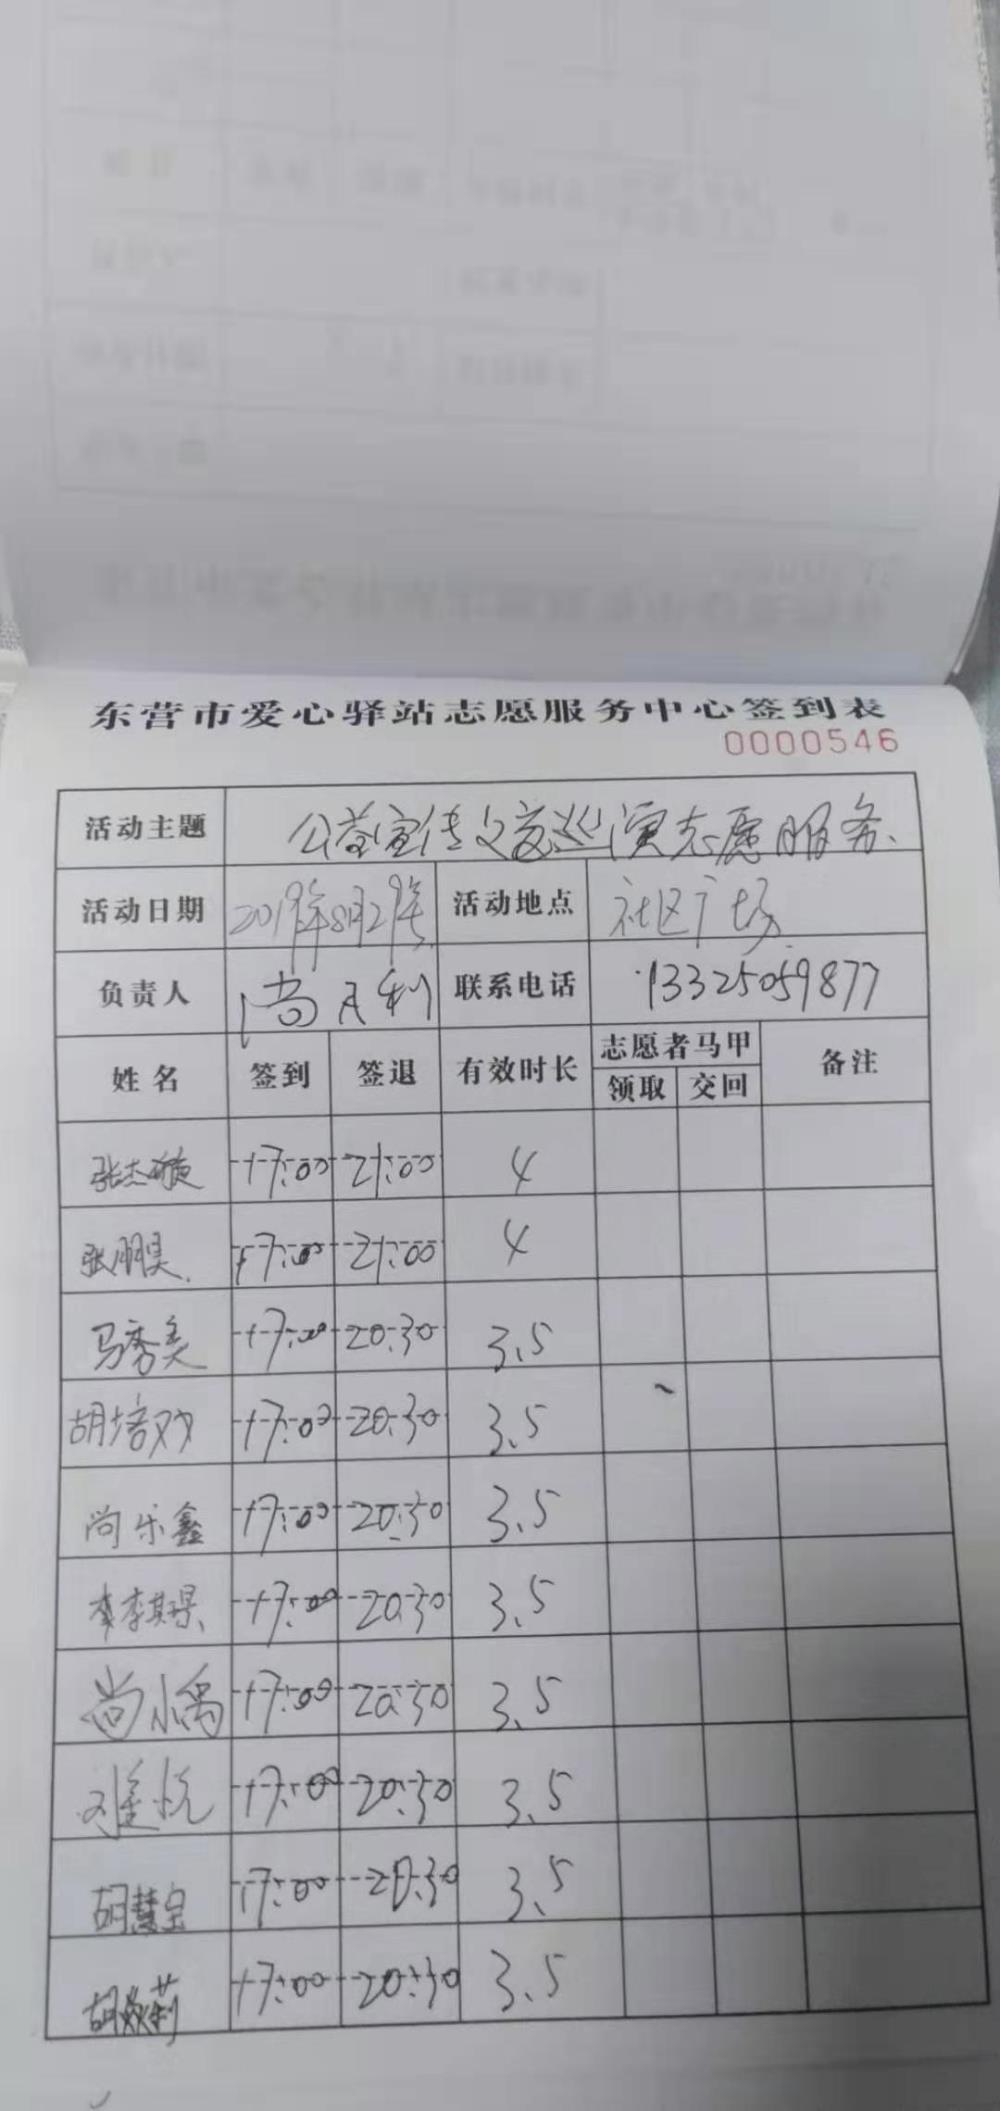 东营市爱心驿站志愿服务中心签到表
0000546
活动主题 公益宣传文艺巡演志愿服务
活动日期 2019年8月29号 活动地点 社区广场
负责人 尚文利 联系电话 13325059877
姓名 签到 签退 有效时长 志愿者马甲 备注
领取 交回
张杰 17:00 21:00 4
张鹏昊 17:00 21:00 4
马秀美 17:00 20:30 3.5
胡培 17:00 20:30 3.5
尚乐鑫 17:00 20:30 3.5
17:00 20:30 3.5
尚小禹 17:00 20:30 3.5
17:00 20:30 3.5
胡慧宝 17:00 20:30 3.5
胡 莉 17:00 20:30 3.5